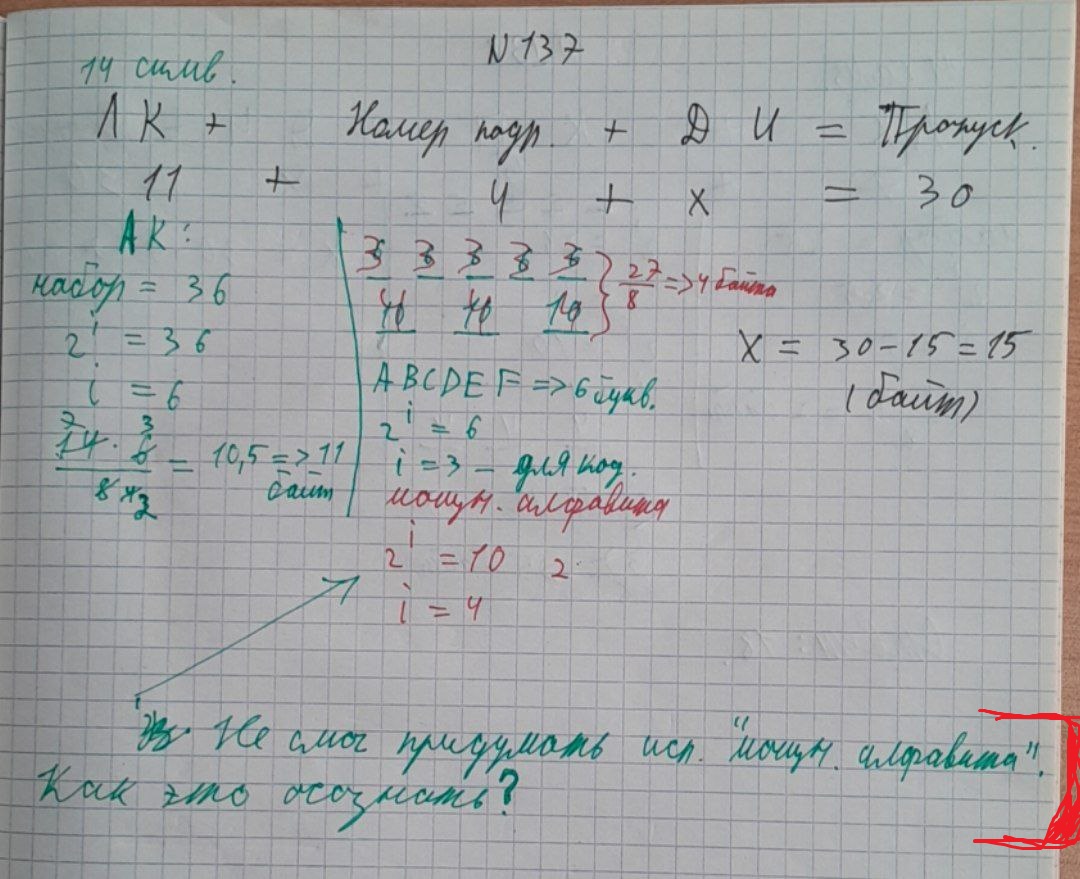 N 137
14 симв.
ЛК + Номер подр. + Д И = Пропуск.
11 + 4 + x = 30
ЛК:
набор = 36
2^i = 36
i = 6
7 3
14 · 6 / 8 4 2 = 10,5 => 11
байт
3 3 3 3 3
4 4 4
27/8 => 4 байта
A B C D E F => 6 букв.
2^i = 6
i = 3 – для код.
мощн. алфавита
2^i = 10 2
i = 4
x = 30 – 15 = 15
(байт)
Не смог придумать исп. "мощн. алфавита".
Как это осознать?